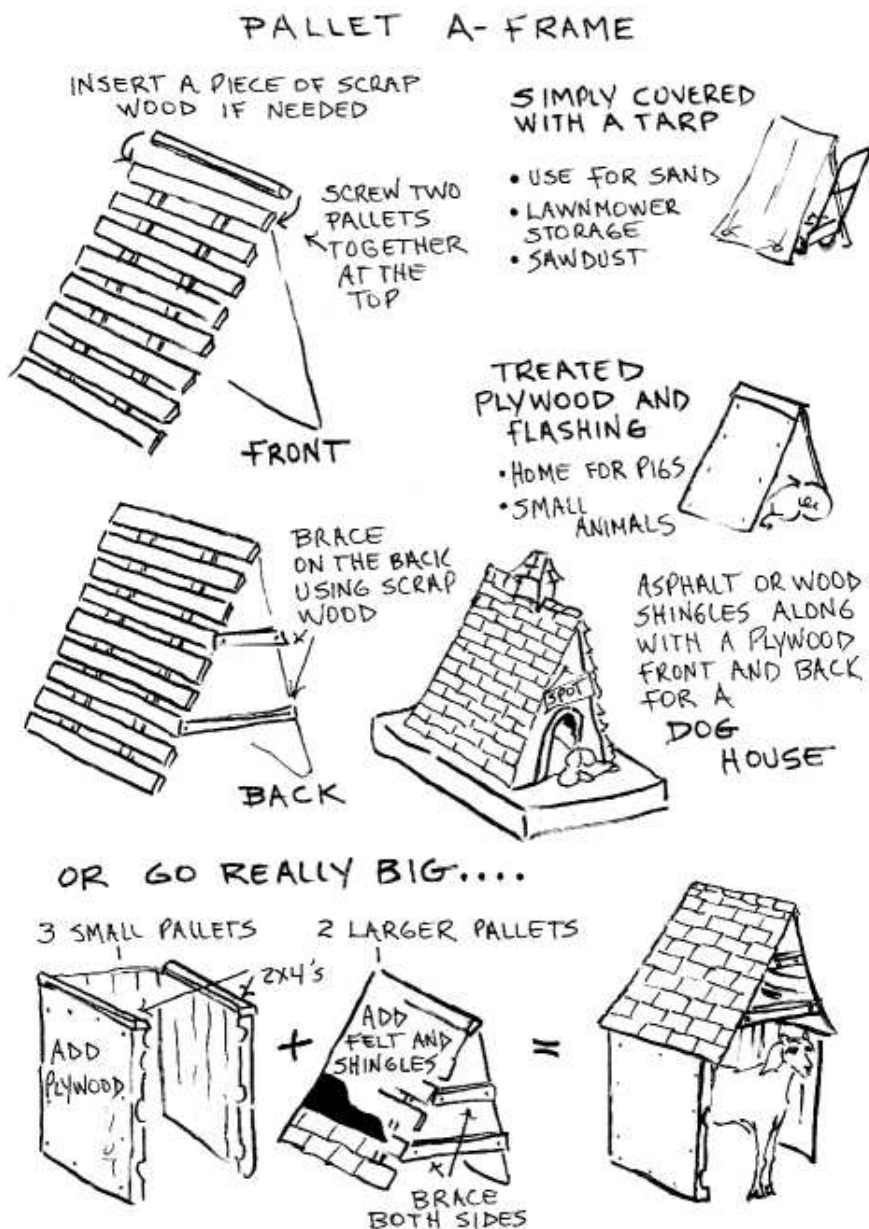 PALLET A-FRAME
INSERT A PIECE OF SCRAP
WOOD IF NEEDED
SCREW TWO
PALLETS
TOGETHER
AT THE
TOP
FRONT
SIMPLY COVERED
WITH A TARP
• USE FOR SAND
• LAWNMOWER
STORAGE
• SAWDUST
TREATED
PLYWOOD AND
FLASHING
• HOME FOR PIGS
• SMALL
ANIMALS
BRACE
ON THE BACK
USING SCRAP
WOOD
BACK
SPOT
ASPHALT OR WOOD
SHINGLES ALONG
WITH A PLYWOOD
FRONT AND BACK
FOR A
DOG
HOUSE
OR GO REALLY BIG....
3 SMALL PALLETS
2X4's
ADD
PLYWOOD
+
2 LARGER PALLETS
ADD
FELT AND
SHINGLES
BRACE
BOTH SIDES
=